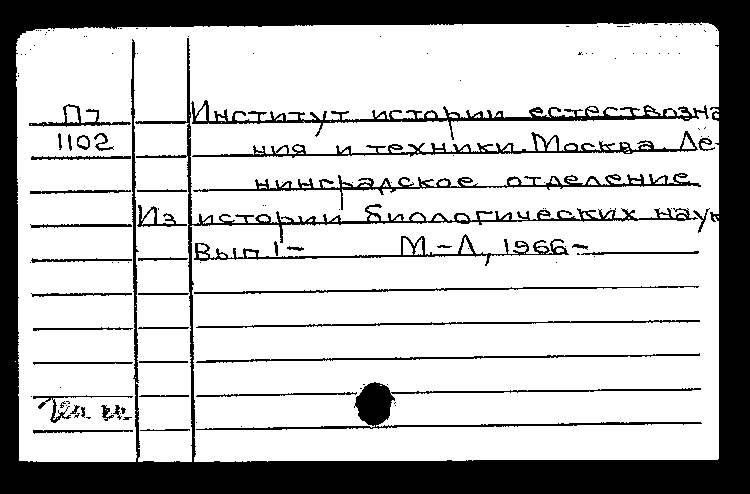 Пд Институт истории естествозна
1102 ния и техники. Москва. Ле-
нинградское отделение
Из истории биологических наук
Вып. 1- М.-Л., 1966-